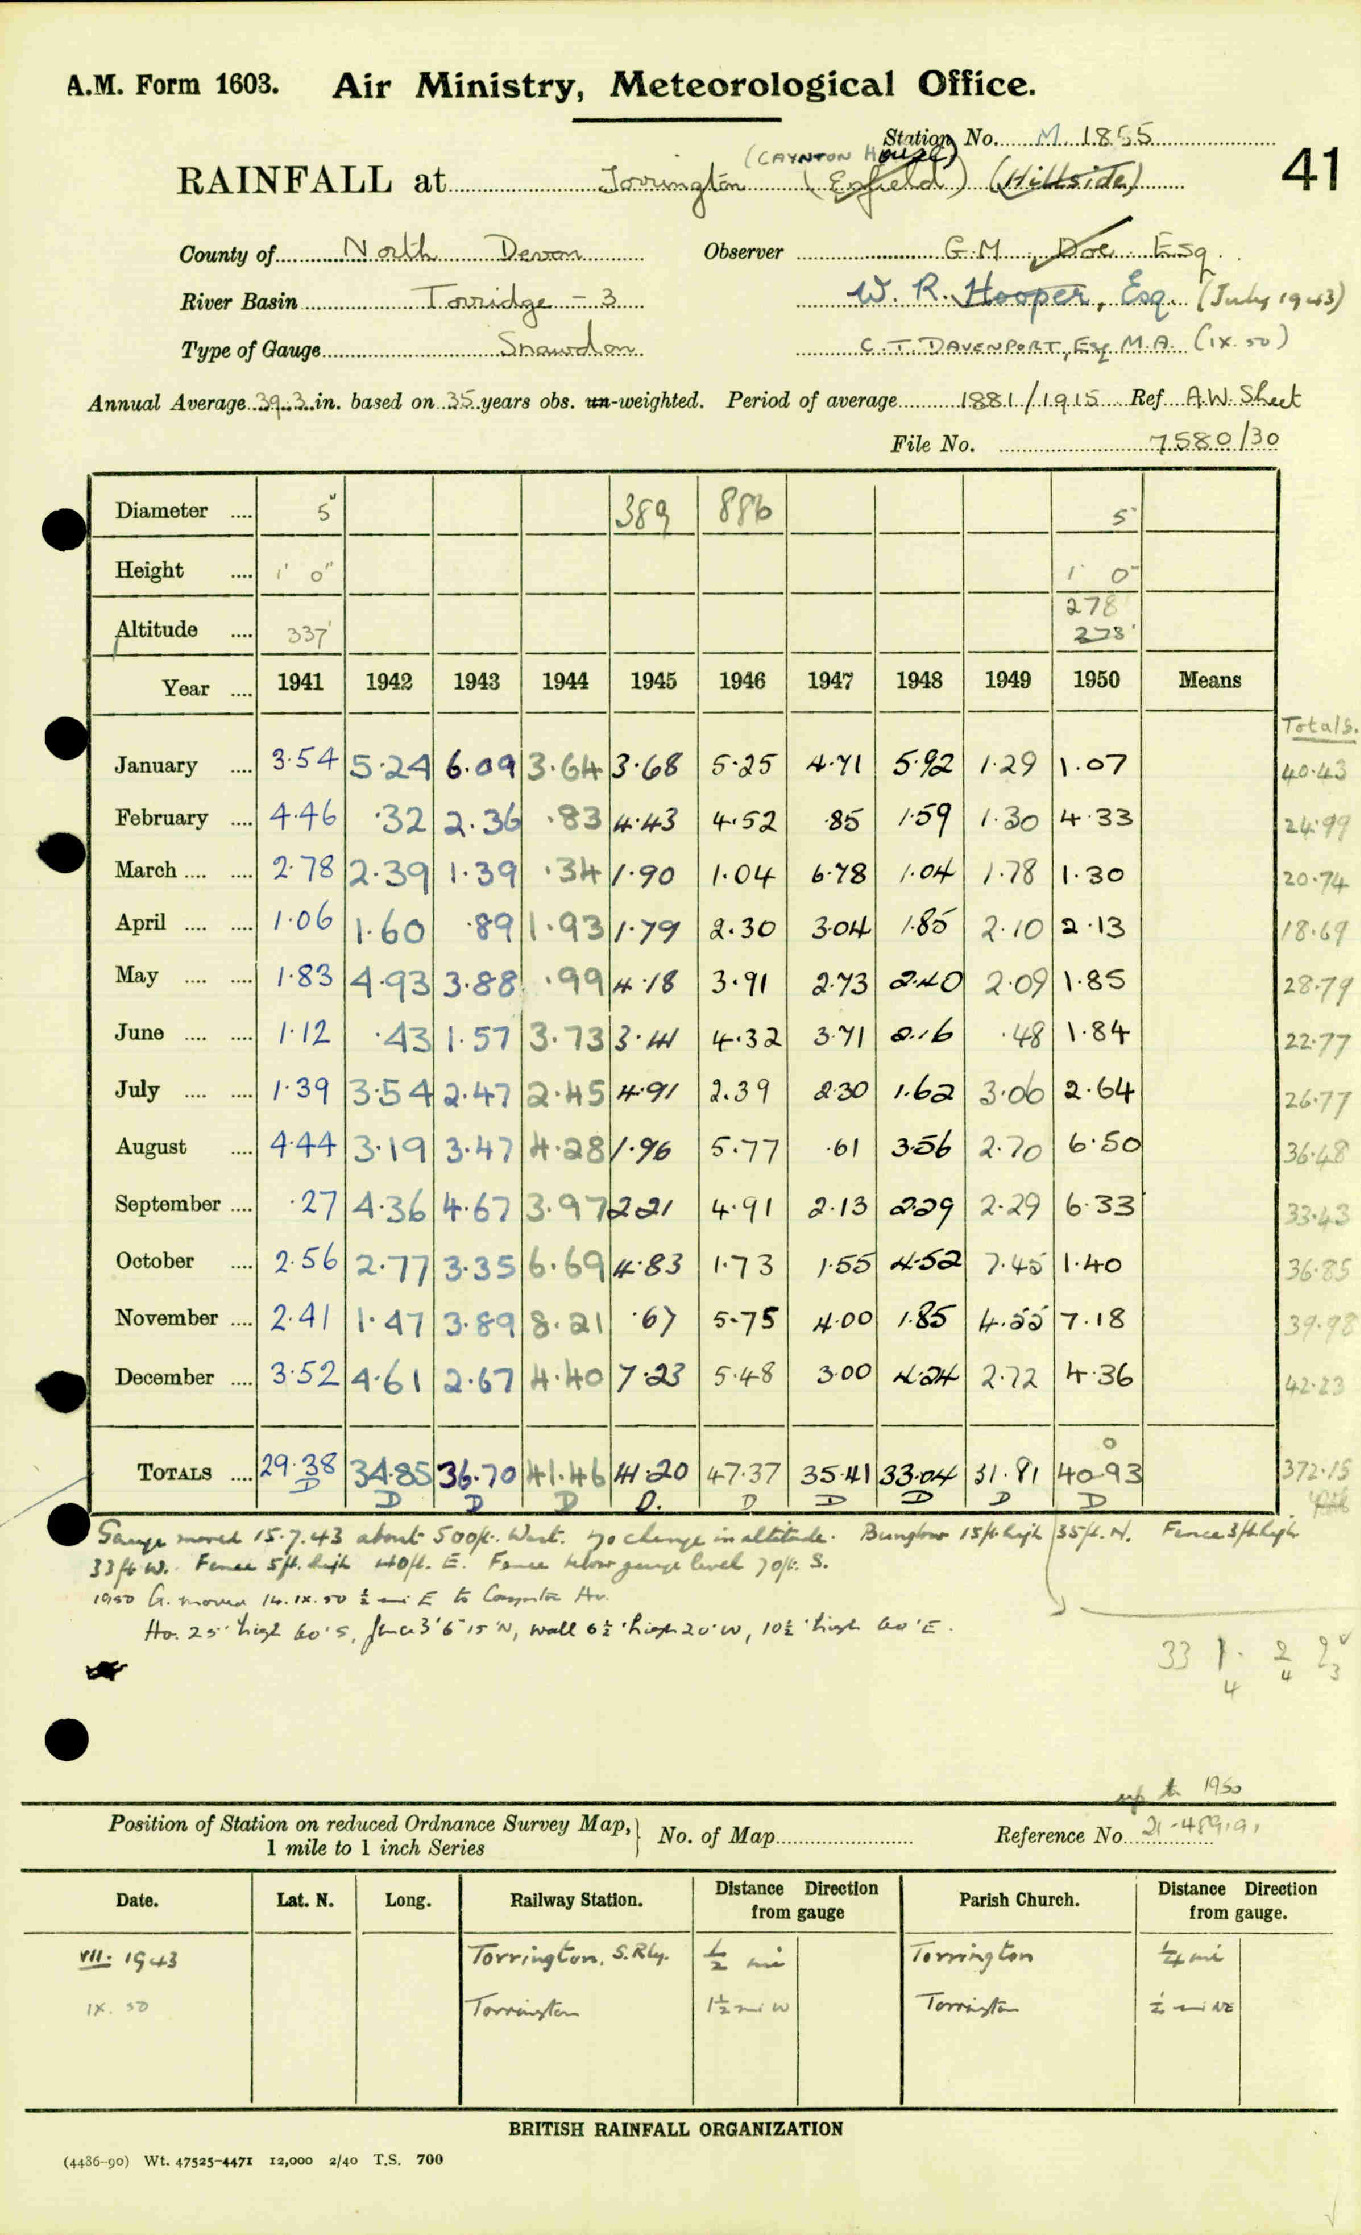 A.M. Form 1603. Air Ministry, Meteorological Office.
Station No. M. 1855
41
(CAYNTON House)
RAINFALL at Torrington (Enfield) (Hillside)
County of North Devon Observer G.M. Doe Esq.
River Basin Torridge - 3 W. R. Hooper, Esq. (July 1943)
Type of Gauge Snowdon C. T. DAVENPORT, Esq M.A. (IX. 50)
Annual Average 39.3 in. based on 35 years obs. un-weighted. Period of average 1881/1915 Ref A.W. Sheet
File No. 7580/30
Diameter .... 5" 389 886 5"
Height .... 1' 0" 1' 0"
278'
Altitude .... 337' 273'
Year .... 1941 1942 1943 1944 1945 1946 1947 1948 1949 1950 Means
Totals.
January .... 3.54 5.24 6.09 3.64 3.68 5.25 4.71 5.92 1.29 1.07 40.43
February .... 4.46 .32 2.36 .83 4.43 4.52 .85 1.59 1.30 4.33 24.99
March .... .... 2.78 2.39 1.39 .34 1.90 1.04 6.78 1.04 1.78 1.30 20.74
April .... .... 1.06 1.60 .89 1.93 1.79 2.30 3.04 1.85 2.10 2.13 18.69
May .... .... 1.83 4.93 3.88 .99 4.18 3.91 2.73 2.40 2.09 1.85 28.79
June .... .... 1.12 .43 1.57 3.73 3.41 4.32 3.71 2.16 .48 1.84 22.77
July .... .... 1.39 3.54 2.47 2.45 4.91 2.39 2.30 1.62 3.06 2.64 26.77
August .... 4.44 3.19 3.47 4.28 1.96 5.77 .61 3.56 2.70 6.50 36.48
September .... .27 4.36 4.67 3.97 2.21 4.91 2.13 2.29 2.29 6.33 33.43
October .... 2.56 2.77 3.35 6.69 4.83 1.73 1.55 4.52 7.45 1.40 36.85
November .... 2.41 1.47 3.89 8.21 .67 5.75 4.00 1.85 4.55 7.18 39.98
December .... 3.52 4.61 2.67 4.40 7.23 5.48 3.00 4.24 2.72 4.36 42.23
TOTALS .... 29.38 34.85 36.70 41.46 41.20 47.37 35.41 33.04 31.81 40.93 372.15
D D D D D. D D D D D
Gauge moved 15.7.43 about 500ft. West. No change in altitude. Bungalow 15ft. high 35ft. N. Fence 3ft high
33ft W. Fence 5ft. high 40ft. E. Fence below gauge level 70ft. S.
1950 G. moved 14.IX.50 ½ mi E to Caynton Ho.
Ho. 25' high 60' S, fence 3'6" 15'N, wall 6½' high 20'W, 10½' high 60'E.
33
up to 1950
Position of Station on reduced Ordnance Survey Map, 1 mile to 1 inch Series
No. of Map
Reference No. 21-489191
Date. Lat. N. Long. Railway Station. Distance Direction from gauge Parish Church. Distance Direction from gauge.
VII. 1943 Torrington. S.Rly. ½ mi Torrington ¼ mi
IX. 50 Torrington 1½ mi W Torrington mi NE
BRITISH RAINFALL ORGANIZATION
(4486-90) Wt. 47525-4471 12,000 2/40 T.S. 700